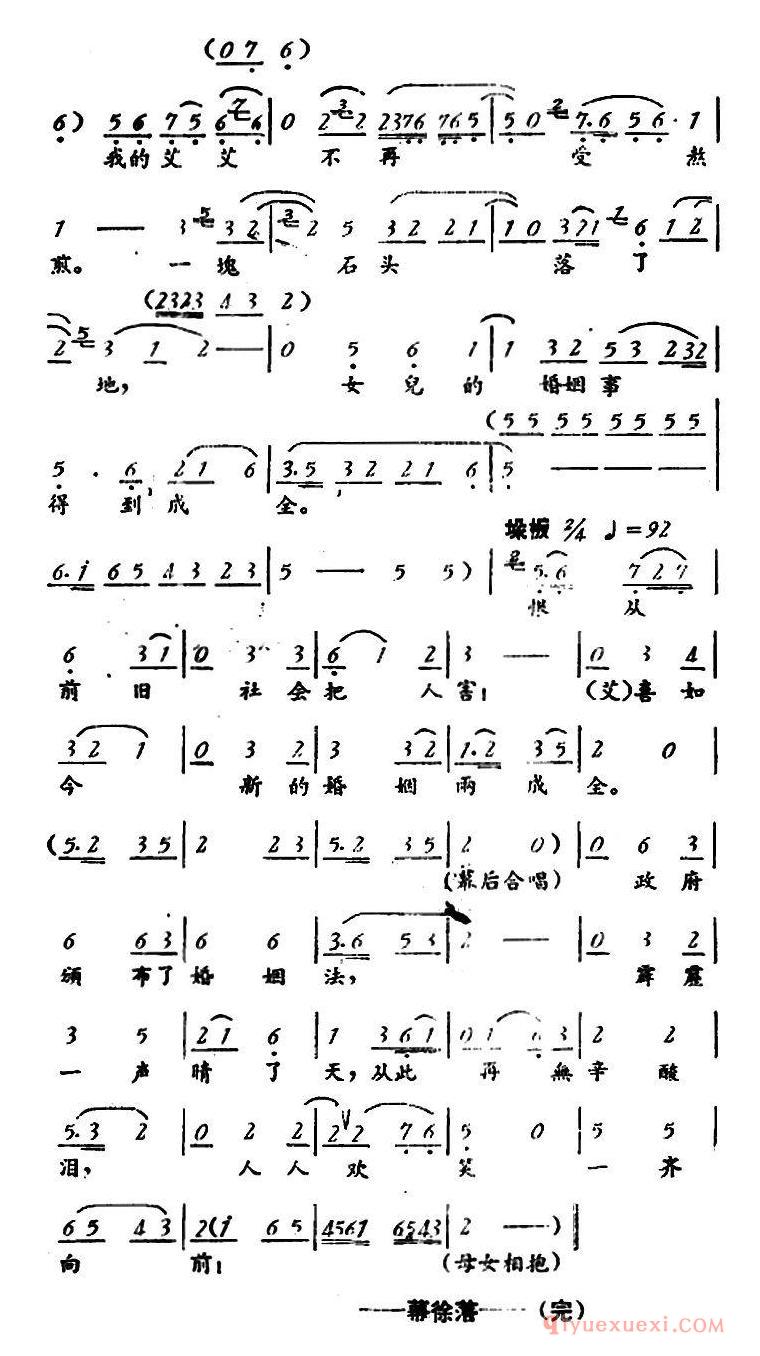 (0 7 6)
6) 5 6 7 5 6 2 6 | 0 2 3 2 2376 7 6 5 | 5 0 2 7.6 5 6 · 1 |
我的艾艾 不再 受 熬
1 — 3 5 3 2 | 3 2 5 3 2 2 1 | 1 0 3 2 1 2 6 1 2 |
煎。 一塊 石头 落了
(2323 4 3 2)
2 5 3 1 2 — | 0 5 6 1 | 1 3 2 5 3 2 32 |
地, 女兒的 婚姻事
(5 5 5 5 5 5 5 5
5 . 6, 2 1 6 | 3.5 3 2 2 1 6 | 5 — — — |
得 到成 全。
垛板 2/4 ♩=92
6.i 6 5 4 3 2 3 | 5 — 5 5) | 2 5.6 7 2 7 |
恨 从
6 3 1 | 0 3 3 | 6 1 2 | 3 — | 0 3 4 |
前 旧 社会把 人害; (艾)喜如
3 2 1 | 0 3 2 | 3 3 2 | 1.2 3 5 | 2 0 |
今 新的婚 姻兩成 全。
(5.2 3 5 | 2 2 3 | 5.2 3 5 | 2 0) | 0 6 3 |
(幕后合唱) 政府
6 6 3 | 6 6 | 3.6 5 3 | 2 — | 0 3 2 |
頒 布了婚 姻 法, 霹靂
3 5 | 2 1 6 | 1 3 6 1 | 0 1 6 3 | 2 2 |
一 声晴 了 天,从此 再 無辛 酸
5.3 2 | 0 2 2 | 2 V 2 7 6 | 5 0 | 5 5 |
泪, 人人 欢 笑 一齐
6 5 4 3 | 2(i 6 5 | 4561 6543 | 2 —) ‖
向 前! (母女相抱)
——幕徐落——(完)
qiyuexuexi.com